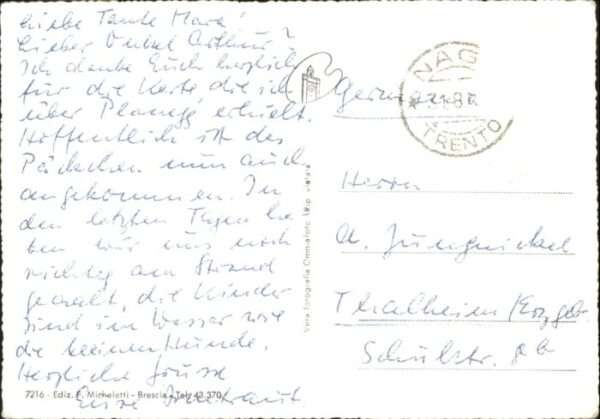 Liebe Tante Mara!
Lieber Onkel Arthur!
Ich danke Euch herzlich
für die Karte, die ich
über Planegg erhielt.
Hoffentlich ist das
Päckchen nun auch
angekommen. In
den letzten Tagen ha
ben wir uns noch
richtig am Strand
geaalt, die Kinder
sind im Wasser wie
die kleinen Hunde.
Herzliche Grüsse
Eure
7216 - Ediz. F. Micheletti - Brescia - Tel. 42.370
Vera Fotografia
NAG
TRENTO
Herrn
A. Jungnickel
Thalheim/Erzgeb.
Schulstr.